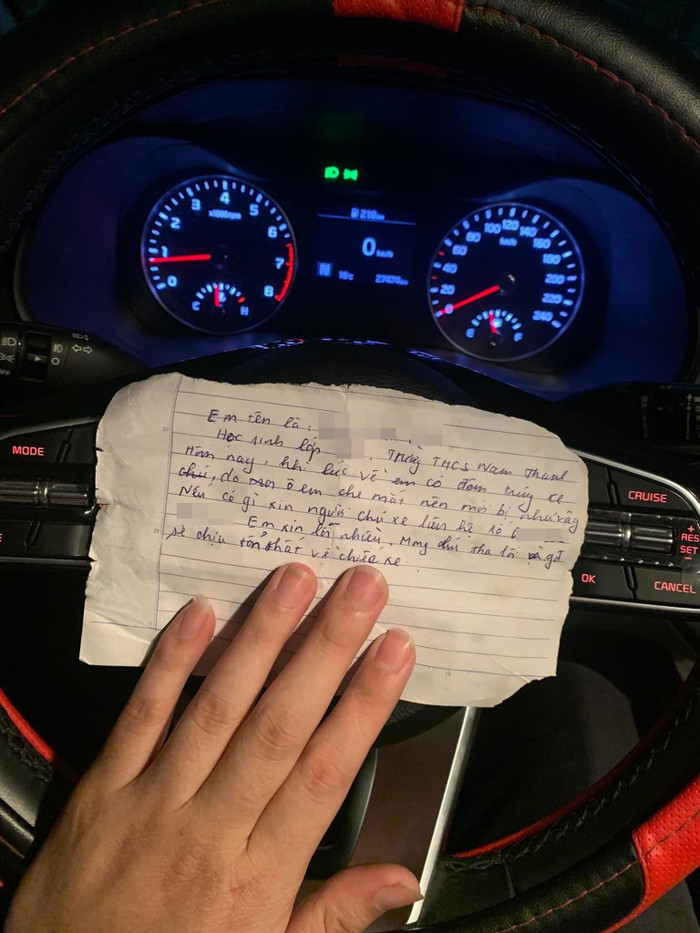 4
3
5
x1000rpm
2
6
1
7
0
8
C
H
218km
0km/h
N
18°c
27474km
100
120
80
140
60
160
km/h
40
180
200
20
220
0
240
E
F
MODE
CRUISE
RES
SET
OK
CANCEL
Em tên là:
Học sinh lớp
. Trường THCS Nam Thanh
Hôm nay, khi lúc về em có đâm trúng xe
chú, do ô em che mắt nên mới bị như vậy
Nếu có gì xin người chủ xe liên hệ số
Em xin lỗi nhiều, Mong chú tha lỗi và gđ
sẽ chịu tổn thất về chiếc xe.